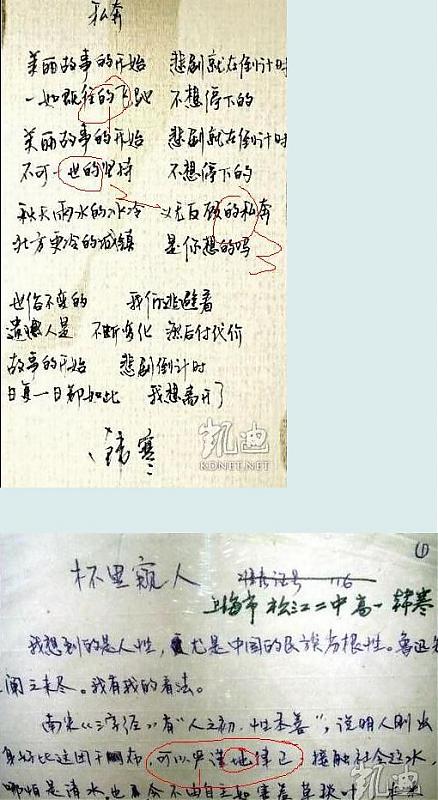 私奔
美丽故事的开始 悲剧就在倒计时
一如既往的飞驰 不想停下的
美丽故事的开始 悲剧就在倒计时
不可一世的坚持 不想停下的
秋天雨水的冰冷 义无反顾的私奔
北方更冷的城镇 是你想的吗
世俗不变的 我们逃避着
遗憾人是 不断劣化 然后付代价
故事的开始 悲剧倒计时
日复一日都如此 我想离开了
韩寒
凯迪
KDNET.NET
①
杯里窥人 准考证号 116
上海市松江二中高一 韩寒
我想到的是人性，尤是中国的民族劣根性。鲁迅先
阐之未尽。我有我的看法。
南宋《三字经》有“人之初，性本善”，说明人刚出
身好比这团干布，可以严谨地律己；接触社会这水，
哪怕是清水，也会不由自主如害羞草